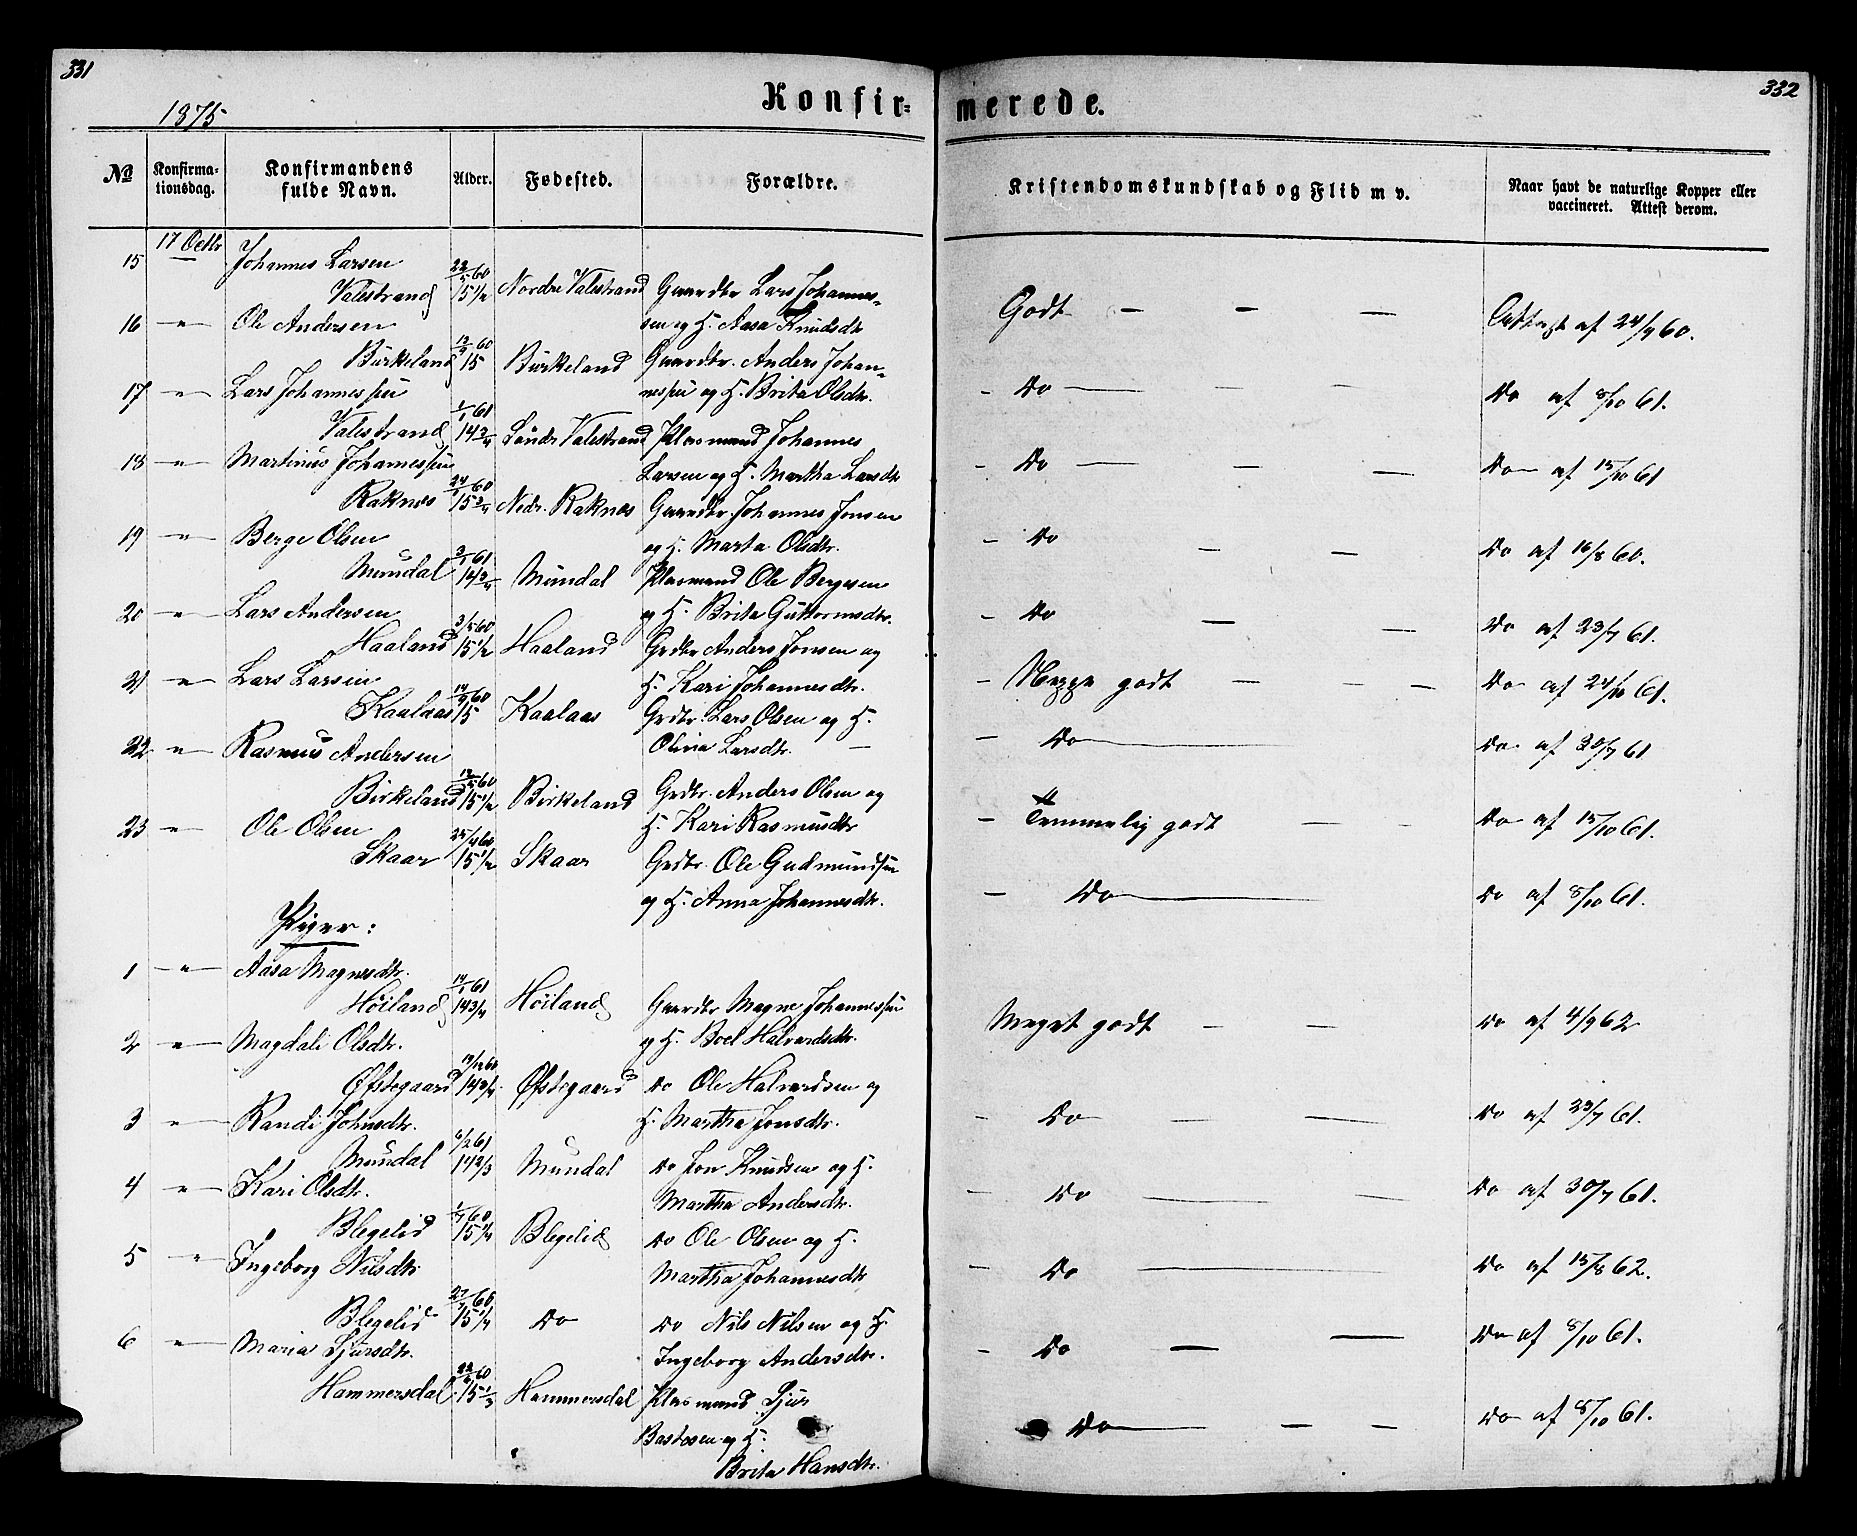 331
332
1875
Konfir-
merede.
No
Konfirma-
tionsdag.
Konfirmandens
fulde Navn.
Alder.
Fødested.
Forældre.
Kristendomskundskab og Flid m v.
Naar havt de naturlige Kopper eller
vaccineret. Attest derom.
15 17 Octbr Johannes Larsen
Valestrand 22/5 60 15 1/2 Nordre Valestrand Gaardbr Lars Johannes-
sen og H. Aasa Knudsdtr Godt — — — Attest af 24/9 60.
16 " Ole Andersen
Birkeland 12/9 60 15 Birkeland Gaardbr. Anders Johan-
nessen og H. Brita Olsdtr. - Do — — — Do af 8/10 61.
17 " Lars Johannessen
Valestrand 1/1 61 14 3/4 Söndr Valestrand Plasmand Johannes
Larsen og H. Martha Larsdtr - Do — — — Do af 15/10 61
18 " Martinus Johannessen
Raknes 24/1 60 15 3/4 Nedr. Raknes Gaardbr. Johannes Jonsen
og H. Marta Olsdtr. - Do — — Do af 16/8 60.
19 " Berge Olsen
Mundal 3/1 61 14 3/4 Mundal Plasmand Ole Bergesen
og H. Brita Guttormsdtr. - Do — — Do af 23/7 61.
20 " Lars Andersen
Haaland 3/5 60 15 1/2 Haaland Grdbr Anders Jonsen og
H. Kari Johannesdtr. - Meget godt — — — Do af 24/10 61.
21 " Lars Larsen
Kaalaas 14/9 60 15 Kaalaas Grdbr. Lars Olsen og H.
Olivia Larsdtr. — - Do — Do. af 30/7 61
22 " Rasmus Andersen
Birkeland 12/5 60 15 1/2 Birkeland Grdbr. Anders Olsen og
H. Kari Rasmusdtr - Temmelig godt — - Do af 15/10 61.
23 " Ole Olsen
Skaar 25/4 60 15 1/2 Skaar Grdbr. Ole Gudmundsen
og H. Anna Johannesdtr. - Do — Do af 8/10 61.
Piger:
1 " Aasa Magnesdtr.
Höiland 14/1 61 14 3/4 Höiland Gaardbr Magne Johannessen
og H. Boel Halvardsdtr. Meget godt — — Do af 4/9 62
2 " Magdali Olsdtr.
Øfstegaard 19/12 60 14 3/4 Øfstegaard Do Ole Halvardsen og
H. Martha Jonsdtr. - Do — — Do af 23/7 61.
3 " Randi Johnsdtr.
Mundal 6/2 61 14 2/3 Mundal Do Jon Knudsen og H.
Martha Andersdtr. - Do — — Do af 30/7 61.
4 " Kari Olsdtr.
Blegelid 1/7 60 15 1/4 Blegelid Do Ole Olsen og H.
Martha Johannesdtr - Do — Do af 15/8 62.
5 " Ingeborg Nilsdtr
Blegelid 27/7 60 15 1/4 Do Do Nils Nilsen og H.
Ingeborg Andersdtr. - Do — — Do af 8/10 61.
6 " Maria Sjursdtr.
Hammersdal 22/6 60 15 1/3 Hammersdal Plasmand Sjur
Bastesen og H.
Brita Hansdtr. Do — — — Do af 8/10 61.